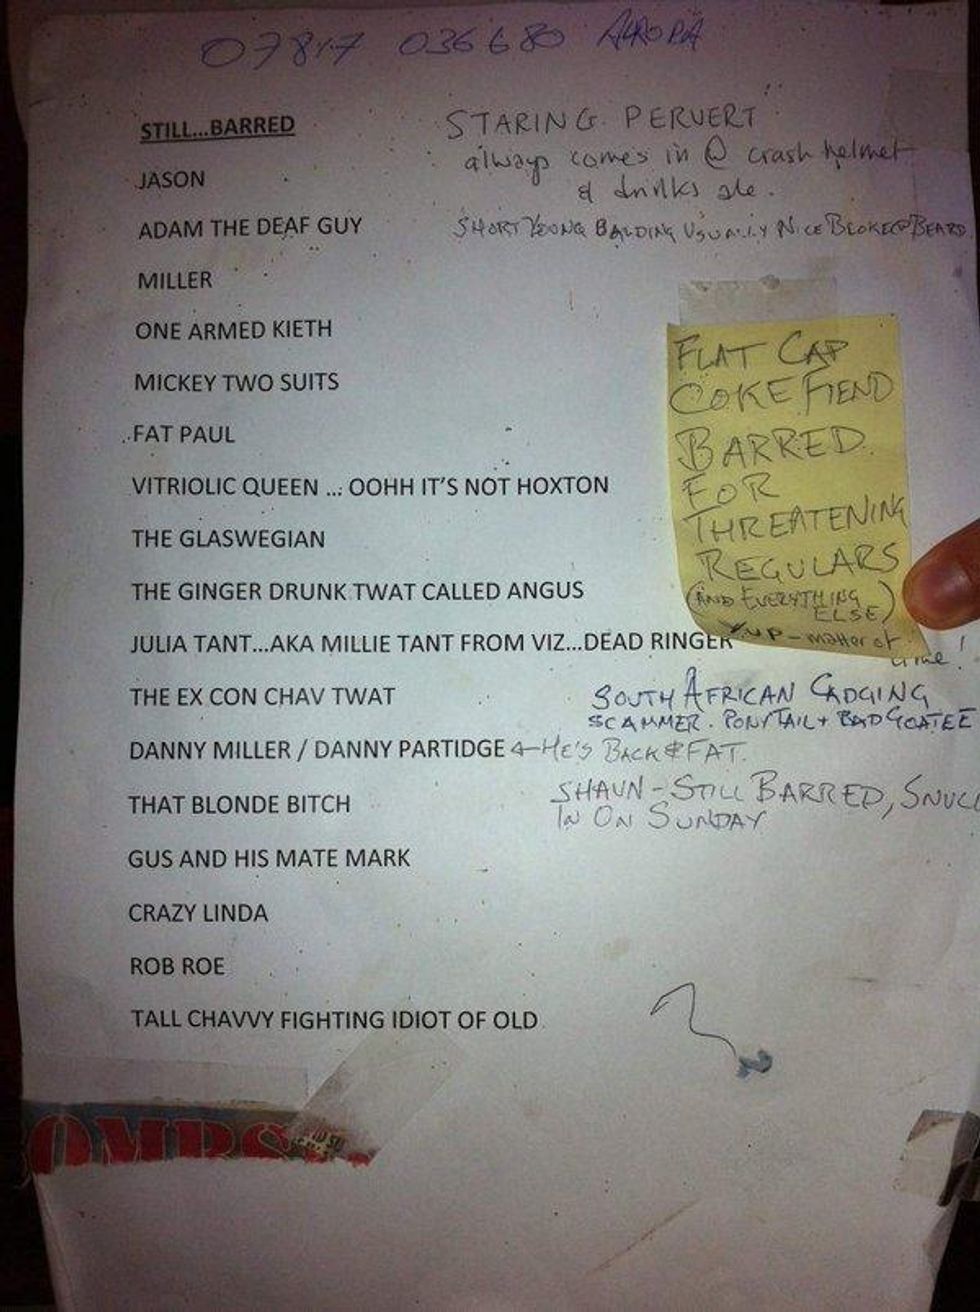 07817 036680
STILL...BARRED
STARING PERVERT
always comes in @ crash helmet
& drinks ale.
JASON
ADAM THE DEAF GUY
SHORT YOUNG BALDING USUALLY NICE BLOKE @ BEARD
MILLER
ONE ARMED KIETH
MICKEY TWO SUITS
FAT PAUL
VITRIOLIC QUEEN ... OOHH IT'S NOT HOXTON
THE GLASWEGIAN
THE GINGER DRUNK TWAT CALLED ANGUS
JULIA TANT...AKA MILLIE TANT FROM VIZ...DEAD RINGER
THE EX CON CHAV TWAT
DANNY MILLER / DANNY PARTIDGE ← HE'S BACK & FAT.
THAT BLONDE BITCH
GUS AND HIS MATE MARK
CRAZY LINDA
ROB ROE
TALL CHAVVY FIGHTING IDIOT OF OLD
FLAT CAP
COKE FIEND
BARRED
FOR
THREATENING
REGULARS
(AND EVERYTHING
ELSE)
YUP - matter of
time!
SOUTH AFRICAN CADGING
SCAMMER. PONYTAIL + BAD GOATEE
SHAUN - STILL BARRED, SNUC
IN ON SUNDAY
OMBS